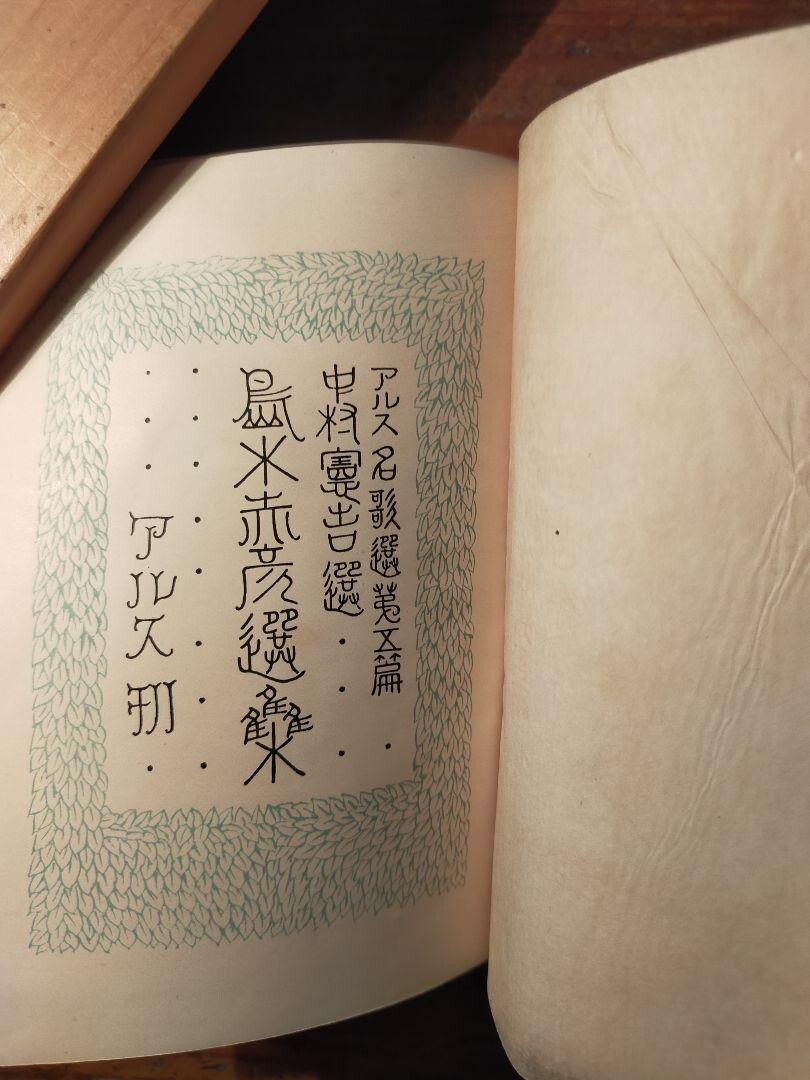 アルス名歌選第五篇
中村憲吉選
島木赤彦選集
アルス刊